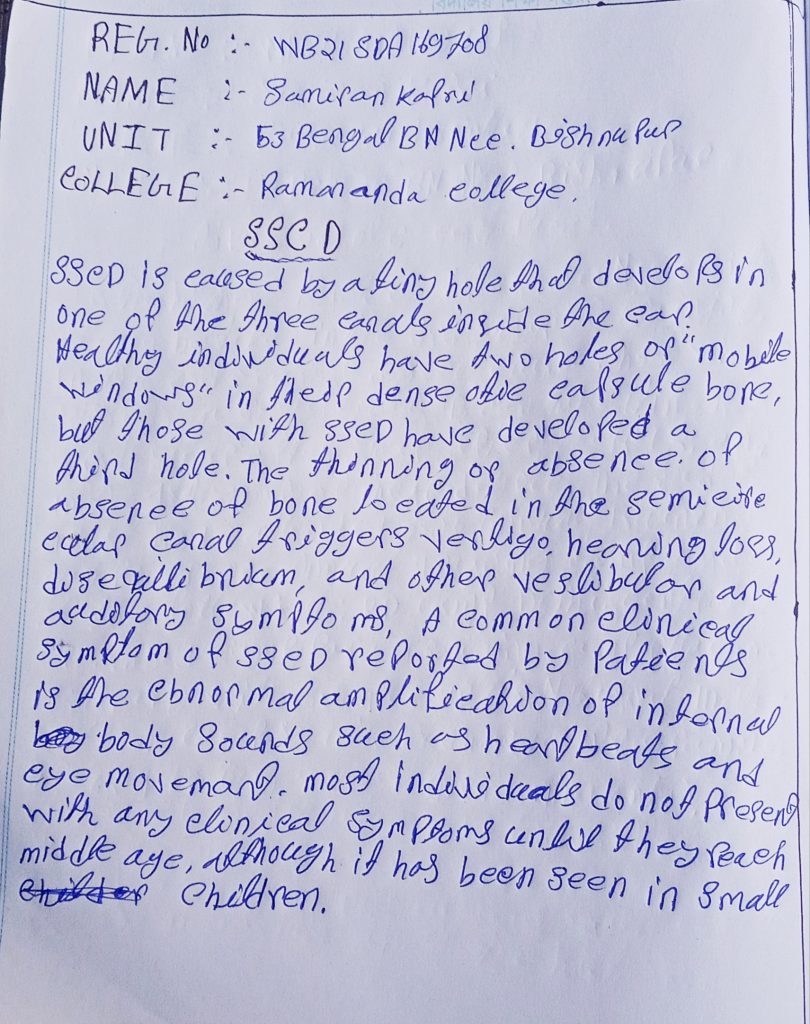 REG. No :- WB21SDA169708
NAME :- Samiran Kapri
UNIT :- 53 Bengal BN Nee. Bishnupur
COLLEGE :- Ramananda college.
SSCD
SSCD is caused by a tiny hole that develops in
one of the three canals inside the ear.
Healthy individuals have two holes or "mobile
windows" in their dense otic capsule bone,
but those with SSCD have developed a
third hole. The thinning or absence. of
absence of bone located in the semicirc
cular canal triggers vertigo, hearing loss,
disequilibrium, and other vestibular and
auditory symptoms, A common clinical
symptom of SSCD reported by Patients
is the ebnormal amplification of internal
body sounds such as heartbeats and
eye movemant. most individuals do not Present
with any clinical symptoms until they reach
middle age, although it has been seen in small
children.